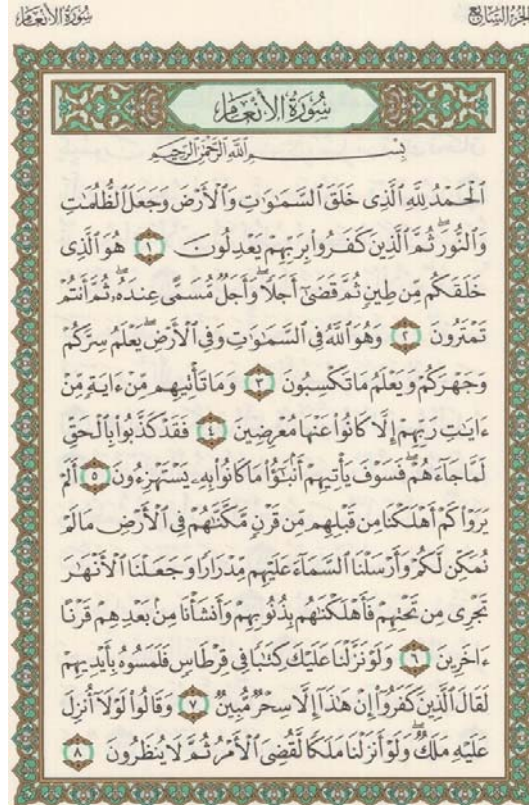 سُورَةُ الأَنْعَامِ
الجُزْءُ السَّابِعُ
سُورَةُ الأَنْعَامِ
بِسْمِ ٱللَّهِ ٱلرَّحْمَٰنِ ٱلرَّحِيمِ
ٱلْحَمْدُ لِلَّهِ ٱلَّذِى خَلَقَ ٱلسَّمَٰوَٰتِ وَٱلْأَرْضَ وَجَعَلَ ٱلظُّلُمَٰتِ
وَٱلنُّورَ ۖ ثُمَّ ٱلَّذِينَ كَفَرُوا۟ بِرَبِّهِمْ يَعْدِلُونَ ١ هُوَ ٱلَّذِى
خَلَقَكُم مِّن طِينٍ ثُمَّ قَضَىٰٓ أَجَلًا ۖ وَأَجَلٌ مُّسَمًّى عِندَهُۥ ۖ ثُمَّ أَنتُمْ
تَمْتَرُونَ ٢ وَهُوَ ٱللَّهُ فِى ٱلسَّمَٰوَٰتِ وَفِى ٱلْأَرْضِ ۖ يَعْلَمُ سِرَّكُمْ
وَجَهْرَكُمْ وَيَعْلَمُ مَا تَكْسِبُونَ ٣ وَمَا تَأْتِيهِم مِّنْ ءَايَةٍ مِّنْ
ءَايَٰتِ رَبِّهِمْ إِلَّا كَانُوا۟ عَنْهَا مُعْرِضِينَ ٤ فَقَدْ كَذَّبُوا۟ بِٱلْحَقِّ
لَمَّا جَآءَهُمْ ۖ فَسَوْفَ يَأْتِيهِمْ أَنۢبَٰٓؤُا۟ مَا كَانُوا۟ بِهِۦ يَسْتَهْزِءُونَ ٥ أَلَمْ
يَرَوْا۟ كَمْ أَهْلَكْنَا مِن قَبْلِهِم مِّن قَرْنٍ مَّكَّنَّٰهُمْ فِى ٱلْأَرْضِ مَا لَمْ
نُمَكِّن لَّكُمْ وَأَرْسَلْنَا ٱلسَّمَآءَ عَلَيْهِم مِّدْرَارًا وَجَعَلْنَا ٱلْأَنْهَٰرَ
تَجْرِى مِن تَحْتِهِمْ فَأَهْلَكْنَٰهُم بِذُنُوبِهِمْ وَأَنشَأْنَا مِنۢ بَعْدِهِمْ قَرْنًا
ءَاخَرِينَ ٦ وَلَوْ نَزَّلْنَا عَلَيْكَ كِتَٰبًا فِى قِرْطَاسٍ فَلَمَسُوهُ بِأَيْدِيهِمْ
لَقَالَ ٱلَّذِينَ كَفَرُوٓا۟ إِنْ هَٰذَآ إِلَّا سِحْرٌ مُّبِينٌ ٧ وَقَالُوا۟ لَوْلَآ أُنزِلَ
عَلَيْهِ مَلَكٌ ۖ وَلَوْ أَنزَلْنَا مَلَكًا لَّقُضِىَ ٱلْأَمْرُ ثُمَّ لَا يُنظَرُونَ ٨